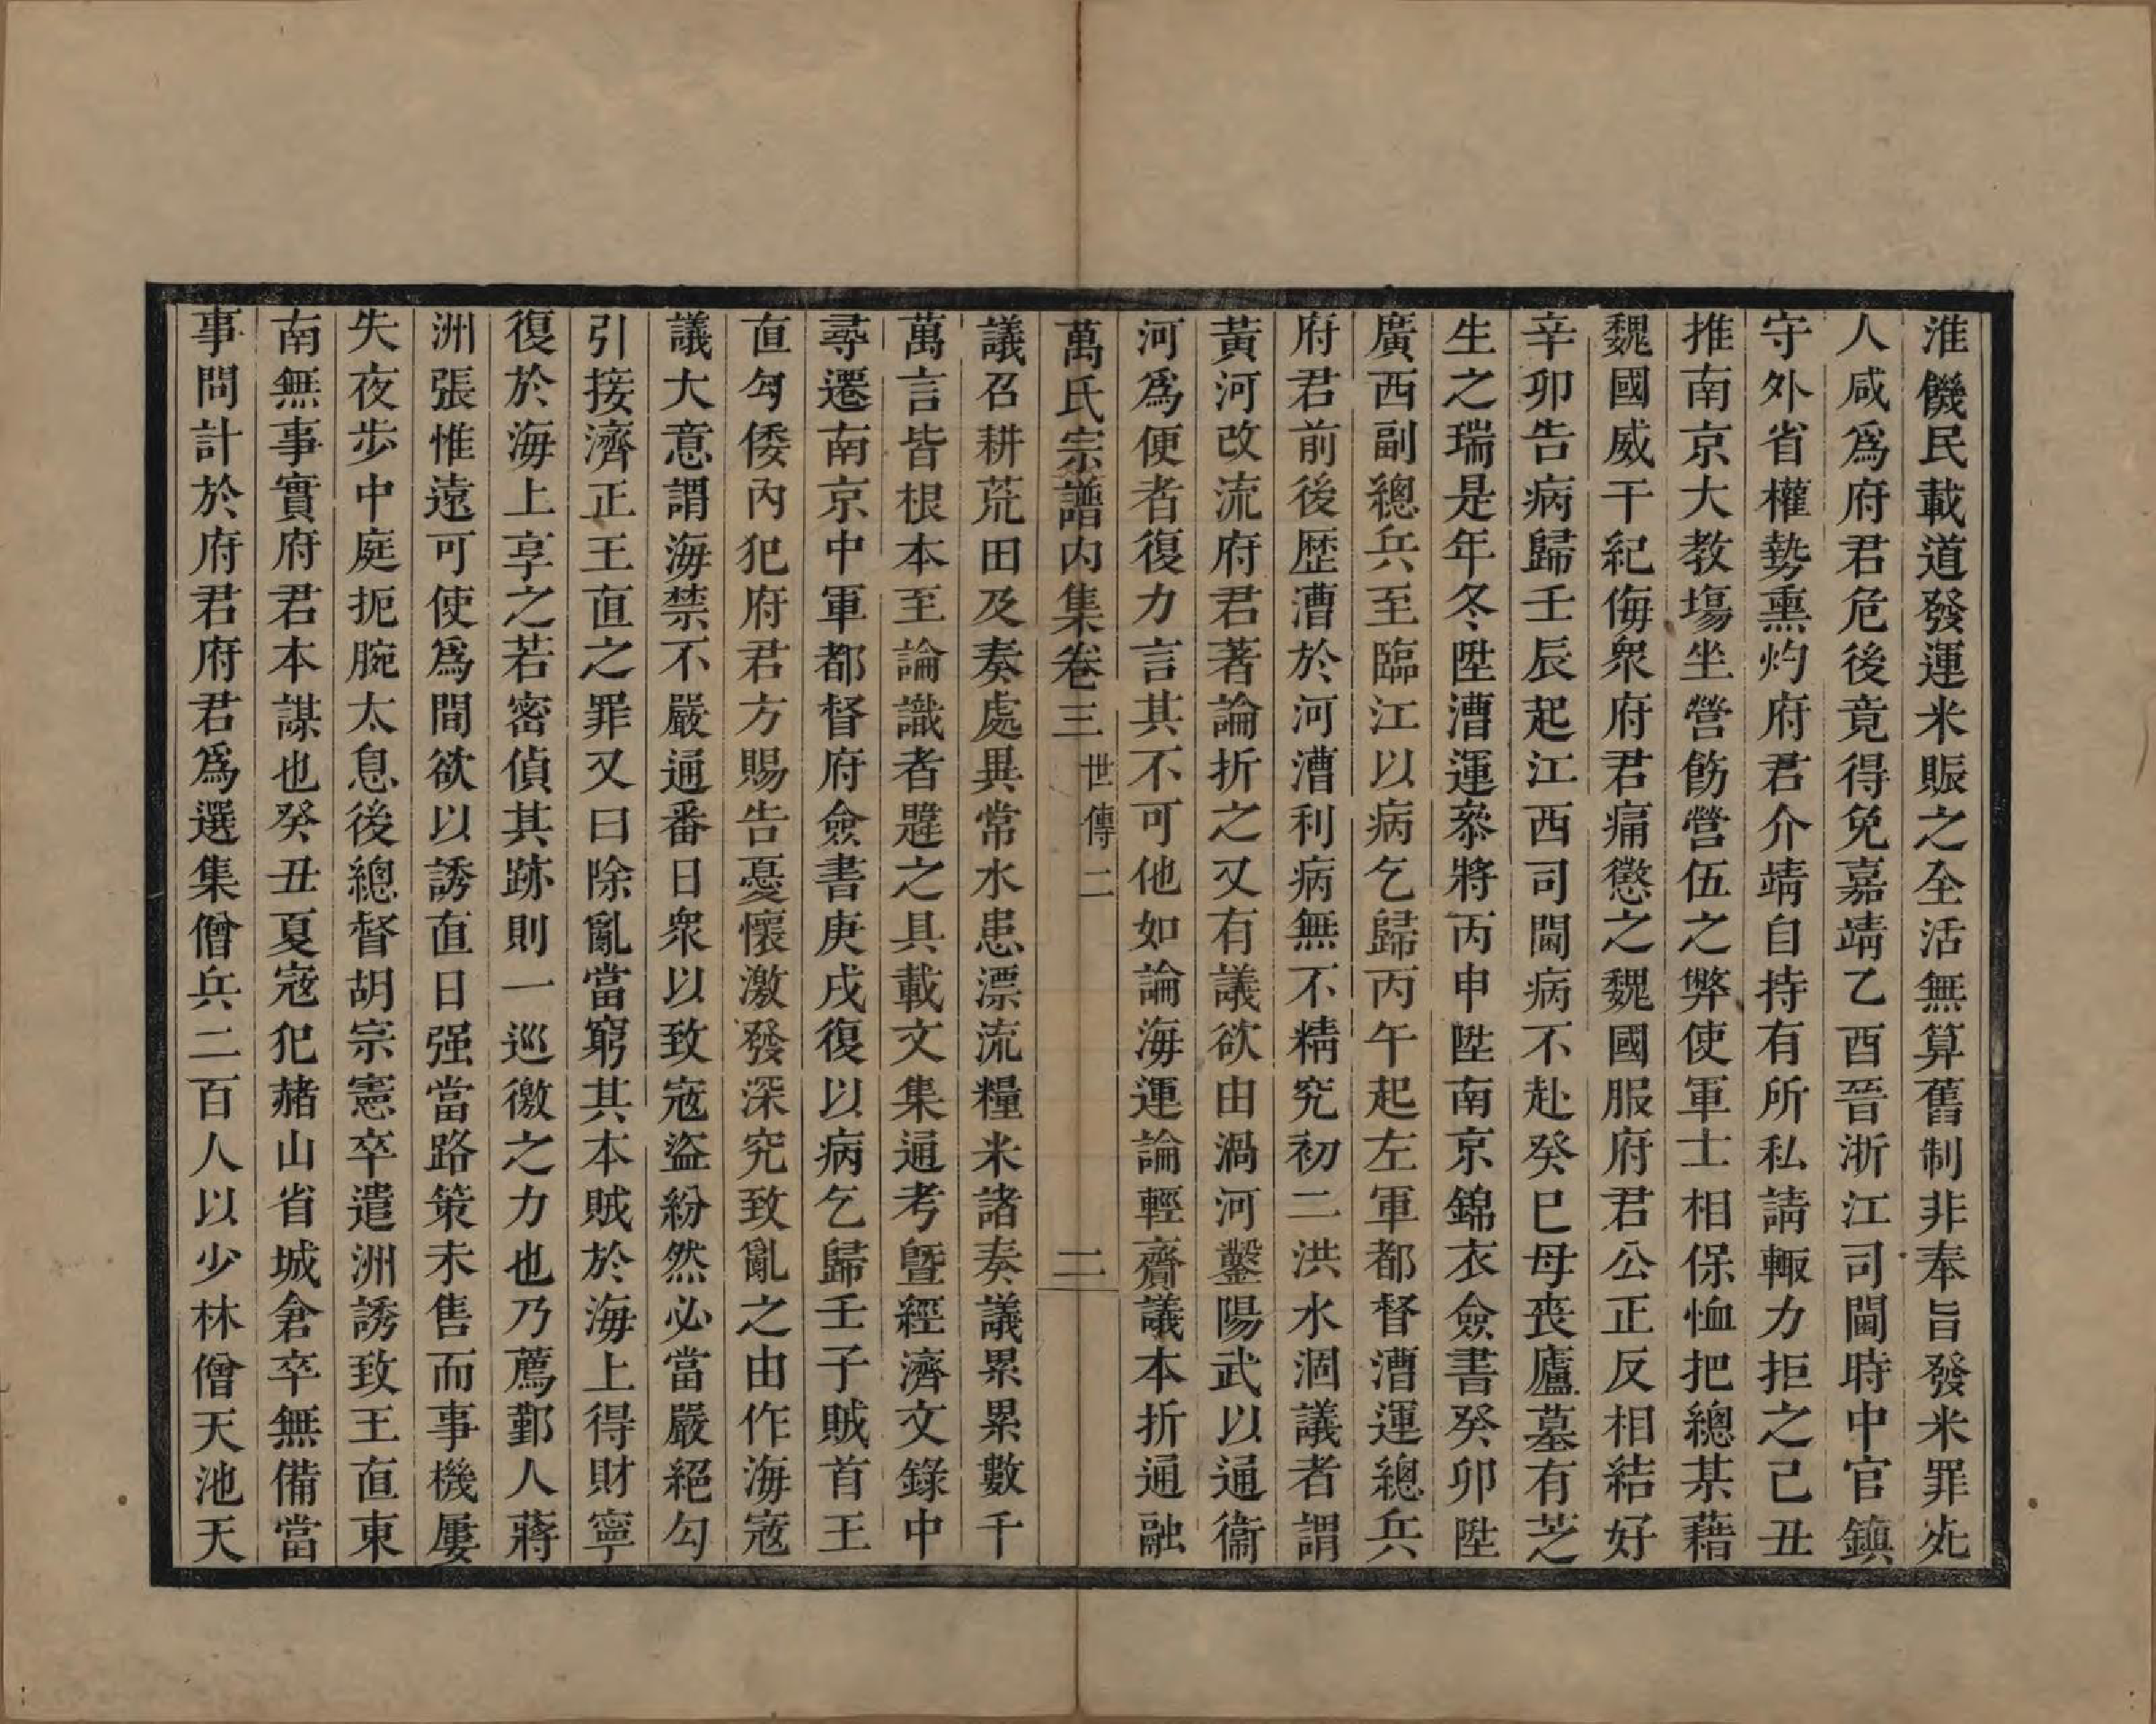 淮饑民載道發運米賑之全活無算舊制非奉旨發米罪死
人咸爲府君危後竟得免嘉靖乙酉晉浙江司閫時中官鎮
守外省權勢熏灼府君介靖自持有所私請輙力拒之己丑
推南京大教塲坐營飭營伍之弊使軍士相保恤把總某藉
魏國威干紀侮衆府君痛懲之魏國服府君公正反相結好
辛卯告病歸壬辰起江西司閫病不赴癸巳母丧廬墓有芝
生之瑞是年冬陞漕運叅將丙申陞南京錦衣僉書癸卯陞
廣西副總兵至臨江以病乞歸丙午起左軍都督漕運總兵
府君前後歴漕於河漕利病無不精究初二洪水涸議者謂
黃河改流府君著論折之又有議欲由渦河鑿陽武以通衞
河爲便者復力言其不可他如論海運論輕齎議本折通融
萬氏宗譜内集卷三 世傳二 二
議召耕荒田及奏處異常水患漂流糧米諸奏議累累數千
萬言皆根本至論識者韙之具載文集通考曁經濟文錄中
尋遷南京中軍都督府僉書庚戌復以病乞歸壬子賊首王
直勾倭內犯府君方賜告憂懷激發深究致亂之由作海寇
議大意謂海禁不嚴通番日衆以致寇盜紛然必當嚴絕勾
引接濟正王直之罪又曰除亂當窮其本賊於海上得財寧
復於海上享之若密偵其跡則一巡徼之力也乃薦鄞人蔣
洲張惟遠可使爲間欲以誘直日强當路策未售而事機屢
失夜歩中庭扼腕太息後總督胡宗憲卒遣洲誘致王直東
南無事實府君本謀也癸丑夏寇犯赭山省城倉卒無備當
事問計於府君府君爲選集僧兵二百人以少林僧天池天